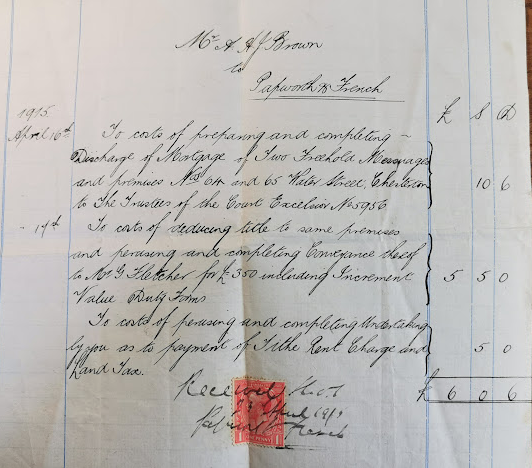 Mr A. A J Brown
to
Papworth & French
£ S D
1915
April 16th To costs of preparing and completing –
Discharge of Mortgage of Two Freehold Messuages
and premises Nos 64 and 65 Water Street, Chesterton 10 6
to The Trustees of the Court Excelsior No 5956
- 19th To costs of deducing title to same premises
and perusing and completing Conveyance thereof
to Mr G Fletcher for £350 including Increment 5 5 0
Value Duty Forms
To costs of perusing and completing Undertaking
by you as to payment of Tithe Rent Charge and 5 0
Land Tax.
£ 6 0 6
Received
April 191
French
1 PENNY 1